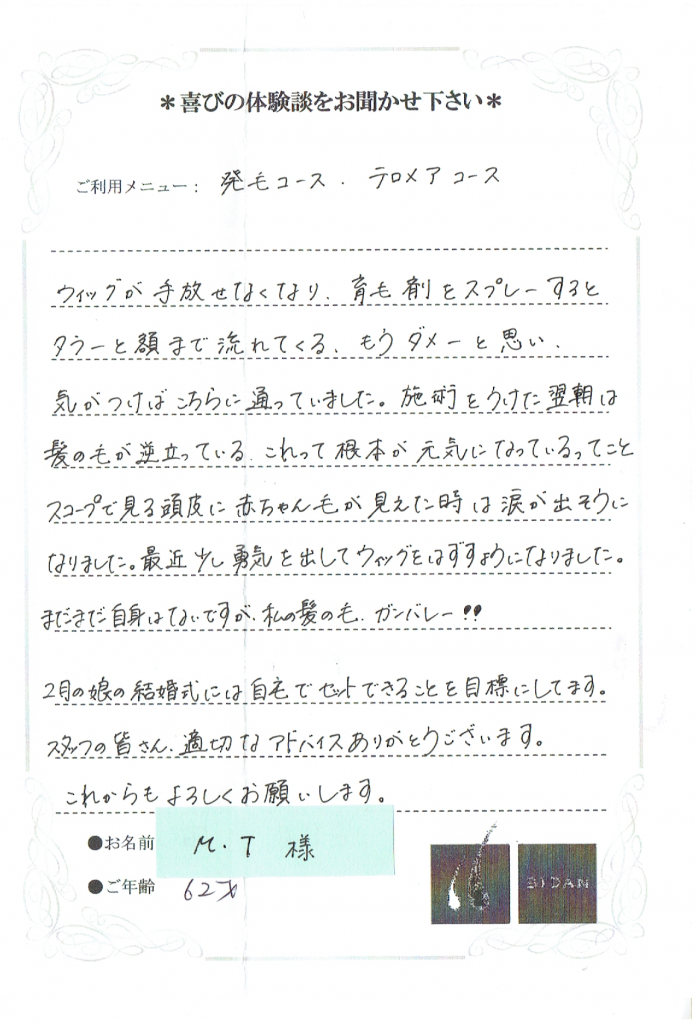 ＊喜びの体験談をお聞かせ下さい＊
ご利用メニュー： 発毛コース．テロメアコース
ウィッグが手放せなくなり、育毛剤をスプレーすると
タラーと額まで流れてくる、もうダメーと思い、
気がつけばこちらに通っていました。施術をうけた翌朝は
髪の毛が逆立っている、これって根本が元気になっているってこと
スコープで見る頭皮に赤ちゃん毛が見えた時は涙が出そうに
なりました。最近少し勇気を出してウィッグをはずすようになりました。
まだまだ自身はないですが、私の髪の毛、ガンバレー!!
2月の娘の結婚式には自宅でセットできることを目標にしてます。
スタッフの皆さん、適切なアドバイスありがとうございます。
これからもよろしくお願いします。
●お名前 M・T 様
●ご年齢 62才
BIDAN